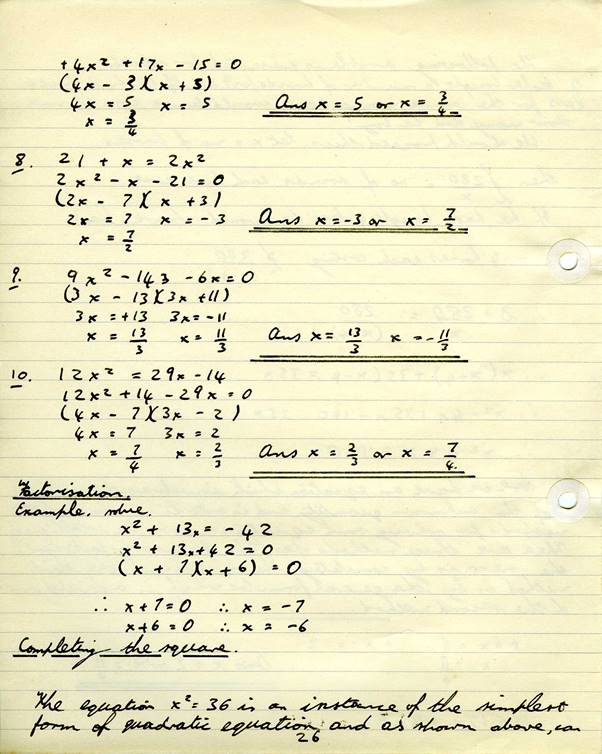 +4x² + 17x - 15 = 0
(4x - 3)(x + 5)
4x = 5 x = 5 Ans x = 5 or x = 3/4
x = 3/4
8. 21 + x = 2x²
2x² - x - 21 = 0
(2x - 7)(x + 3)
2x = 7 x = -3 Ans x = -3 or x = 7/2
x = 7/2
9. 9x² - 143 - 6x = 0
(3x - 13)(3x + 11)
3x = +13 3x = -11
x = 13/3 x = 11/3 Ans x = 13/3 x = -11/3
10. 12x² = 29x - 14
12x² + 14 - 29x = 0
(4x - 7)(3x - 2)
4x = 7 3x = 2
x = 7/4 x = 2/3 Ans x = 2/3 or x = 7/4.
Factorisation.
Example. solve.
x² + 13x = -42
x² + 13x + 42 = 0
(x + 7)(x + 6) = 0
∴ x + 7 = 0 ∴ x = -7
x + 6 = 0 ∴ x = -6
Completing the square.
The equation x² = 36 is an instance of the simplest
form of quadratic equation, and as shown above, can
26